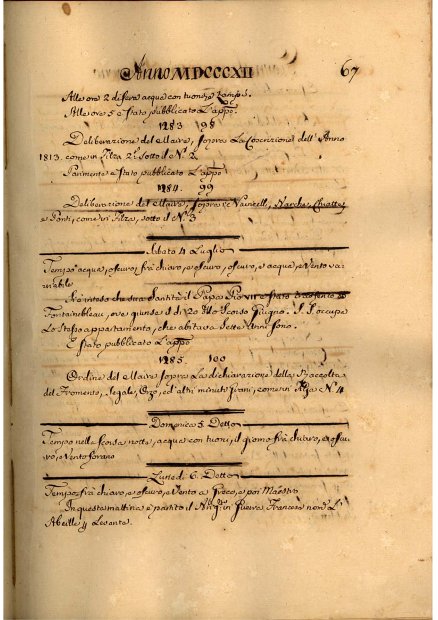 Anno MDCCCXII 67
Alle ore 2 di sera acque con tuoni, e Lampi.
Alle ore 5 è stato pubblicato L'app.o
1283 98
Deliberazione del Maire, sopra La Coscrizione dell'Anno
1813. come in Filza 2.a sotto il N.o 2
Parimente è stato pubblicato L'app.o
1284 99
Deliberazione del Maire, sopra i Vascelli, Barche, Chiatte,
e Ponti, come in Filza, sotto il N.o 3
Sabato 4 Luglio
Tempo acqua, oscuro, frà chiaro, e oscuro, oscuro, e acqua, e Vento va-
riabile
Si è inteso che sua Santità il Papa Pio VII è stato trasferito a
Fontainebleau, ove giunse il dì 20 dello scorso Giugno. S. S. occupa
Lo stesso appartamento, che abitava sette Anni sono.
È stato pubblicato L'app.o
1285 100
Ordine del Maire sopra La dichiarazione della Raccolta
del Fromento, Segale, Orzo, ed altri minuti Grani, come in Filza N.o 4
Domenica 5 Detto
Tempo nella scorsa notte, acque con tuoni, il giorno frà chiaro, e oscu-
ro, e Vento forano
Lunedì 6 Detto
Tempo frà chiaro, e oscuro, e Vento a Greco, e poi Maestro
In questa mattina è partito il in Guerra Francese nom. L'
Abeille p Levante.